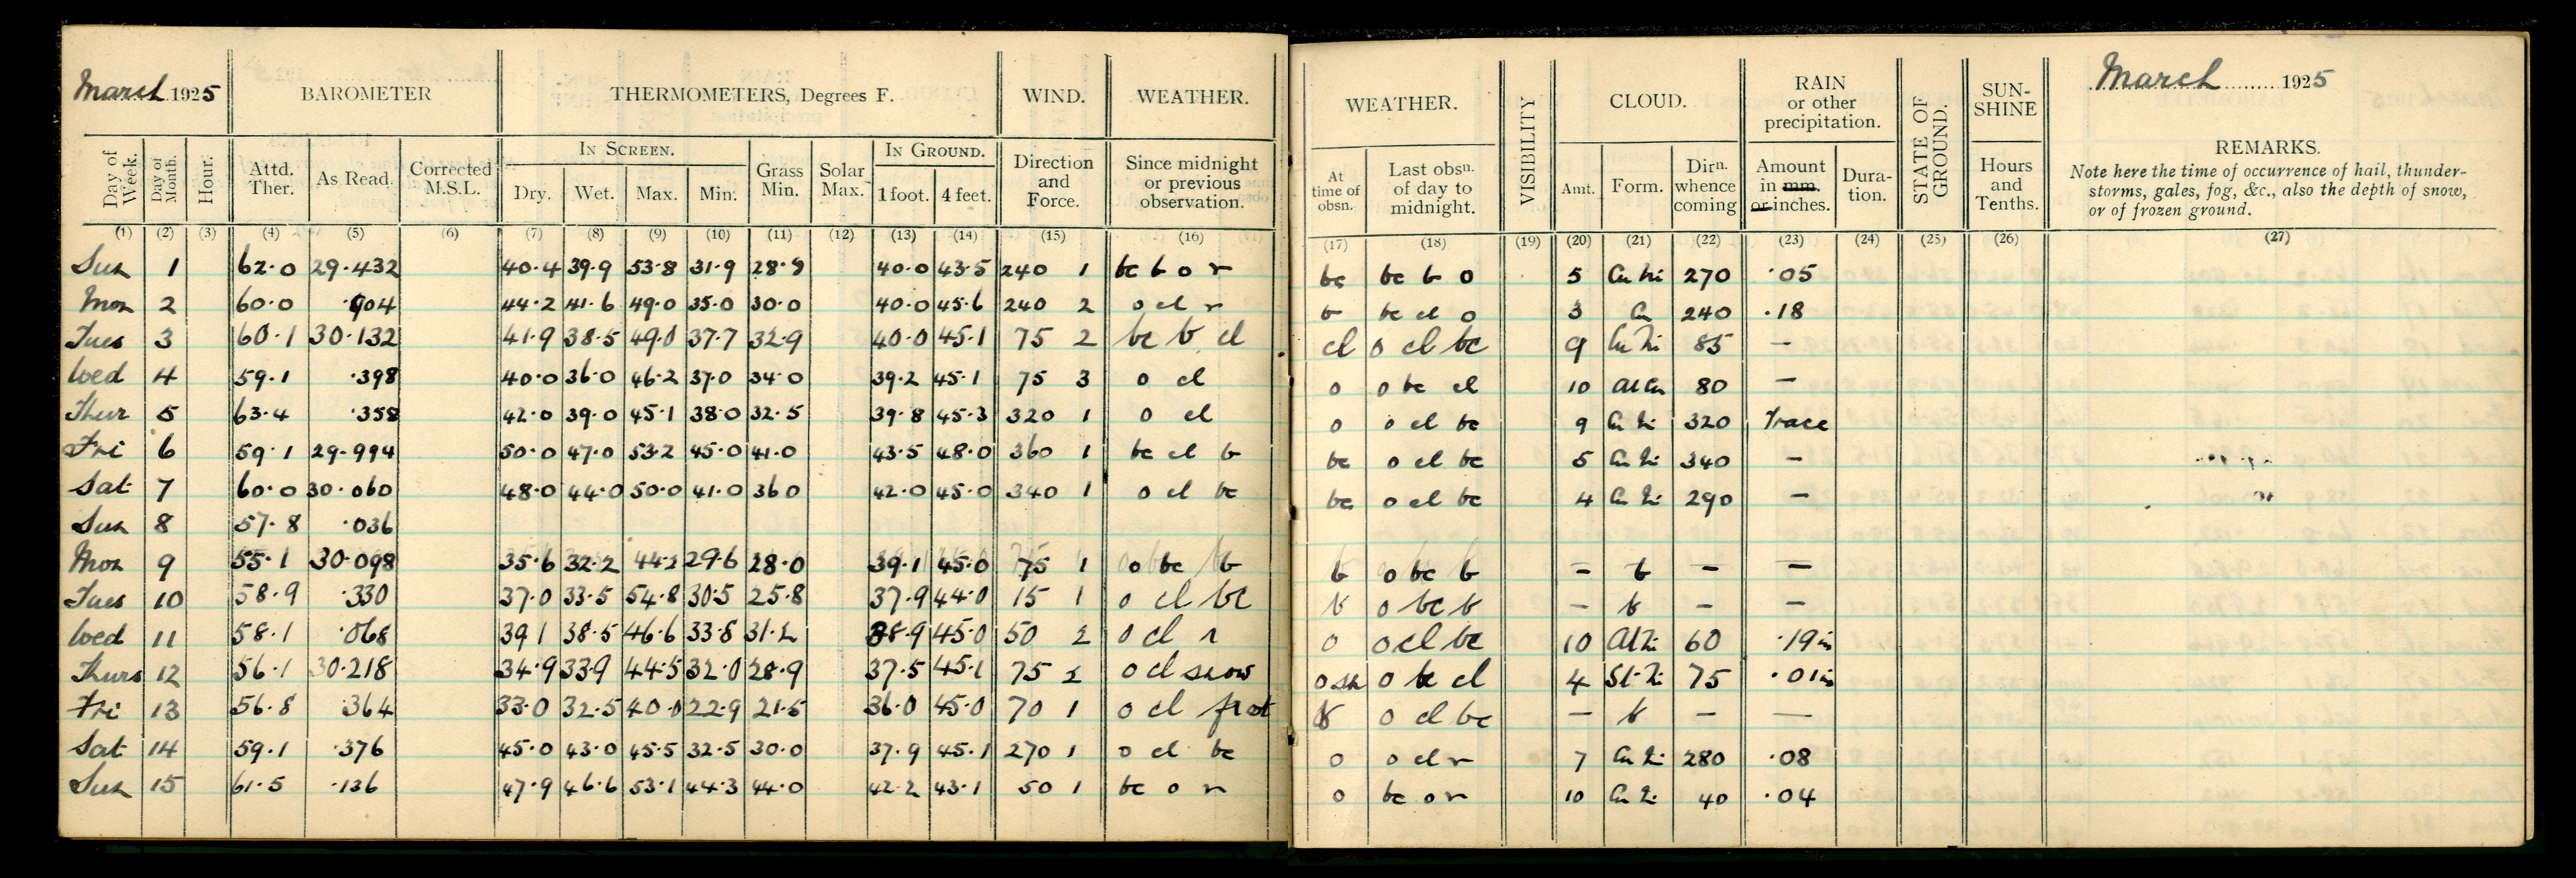 March 1925 BAROMETER THERMOMETERS, Degrees F. WIND. WEATHER.
Day of Week. Day of Month. Hour. Attd. Ther. As Read. Corrected M.S.L. IN SCREEN. Dry. Wet. Max. Min. Grass Min. Solar Max. IN GROUND. 1 foot. 4 feet. Direction and Force. Since midnight or previous observation.
(1) (2) (3) (4) (5) (6) (7) (8) (9) (10) (11) (12) (13) (14) (15) (16)
Sun 1 62.0 29.432 40.4 39.9 53.8 31.9 28.9 40.0 43.5 240 1 bc b o r
Mon 2 60.0 .904 44.2 41.6 49.0 35.0 30.0 40.0 45.6 240 2 o cl r
Tues 3 60.1 30.132 41.9 38.5 49.0 37.7 32.9 40.0 45.1 75 2 bc b cl
Wed 4 59.1 .398 40.0 36.0 46.2 37.0 34.0 39.2 45.1 75 3 o cl
Thur 5 63.4 .358 42.0 39.0 45.1 38.0 32.5 39.8 45.3 320 1 o cl
Fri 6 59.1 29.994 50.0 47.0 53.2 45.0 41.0 43.5 48.0 360 1 bc cl b
Sat 7 60.0 30.060 48.0 44.0 50.0 41.0 36.0 42.0 45.0 340 1 o cl bc
Sun 8 57.8 .036
Mon 9 55.1 30.098 35.6 32.2 44.2 29.6 28.0 39.1 45.0 75 1 o bc b
Tues 10 58.9 .330 37.0 33.5 54.8 30.5 25.8 37.9 44.0 15 1 o cl bc
Wed 11 58.1 .068 39.1 38.5 46.6 33.8 31.2 38.9 45.0 50 2 o cl r
Thurs 12 56.1 30.218 34.9 33.9 44.5 32.0 28.9 37.5 45.1 75 2 o cl snow
Fri 13 56.8 .364 33.0 32.5 40.0 22.9 21.5 36.0 45.0 70 1 o cl frost
Sat 14 59.1 .376 45.0 43.0 45.5 32.5 30.0 37.9 45.1 270 1 o cl bc
Sun 15 61.5 .136 47.9 46.6 53.1 44.3 44.0 42.2 43.1 50 1 bc o r
WEATHER. VISIBILITY CLOUD. RAIN or other precipitation. STATE OF GROUND. SUN-SHINE March 1925
At time of obsn. Last obsn. of day to midnight. Amt. Form. Dirn. whence coming Amount in mm. or inches. Duration. Hours and Tenths. REMARKS.
Note here the time of occurrence of hail, thunder-
storms, gales, fog, &c., also the depth of snow,
or of frozen ground.
(17) (18) (19) (20) (21) (22) (23) (24) (25) (26) (27)
bc bc b o 5 Cu Ni 270 .05
b bc cl o 3 Cu 240 .18
cl o cl bc 9 Cu Ni 85 —
o o bc cl 10 Al Cu 80 —
o o cl bc 9 Cu Ni 320 Trace
bc o cl bc 5 Cu Ni 340 —
bc o cl bc 4 Cu Ni 290 —
b o bc b — b — —
b o bc b — b — —
o o cl bc 10 Al Ni 60 .19 in
o sn o bc cl 4 St-Ni 75 .01 in
b o cl bc — b — —
o o cl r 7 Cu Ni 280 .08
o bc o r 10 Cu Ni 40 .04